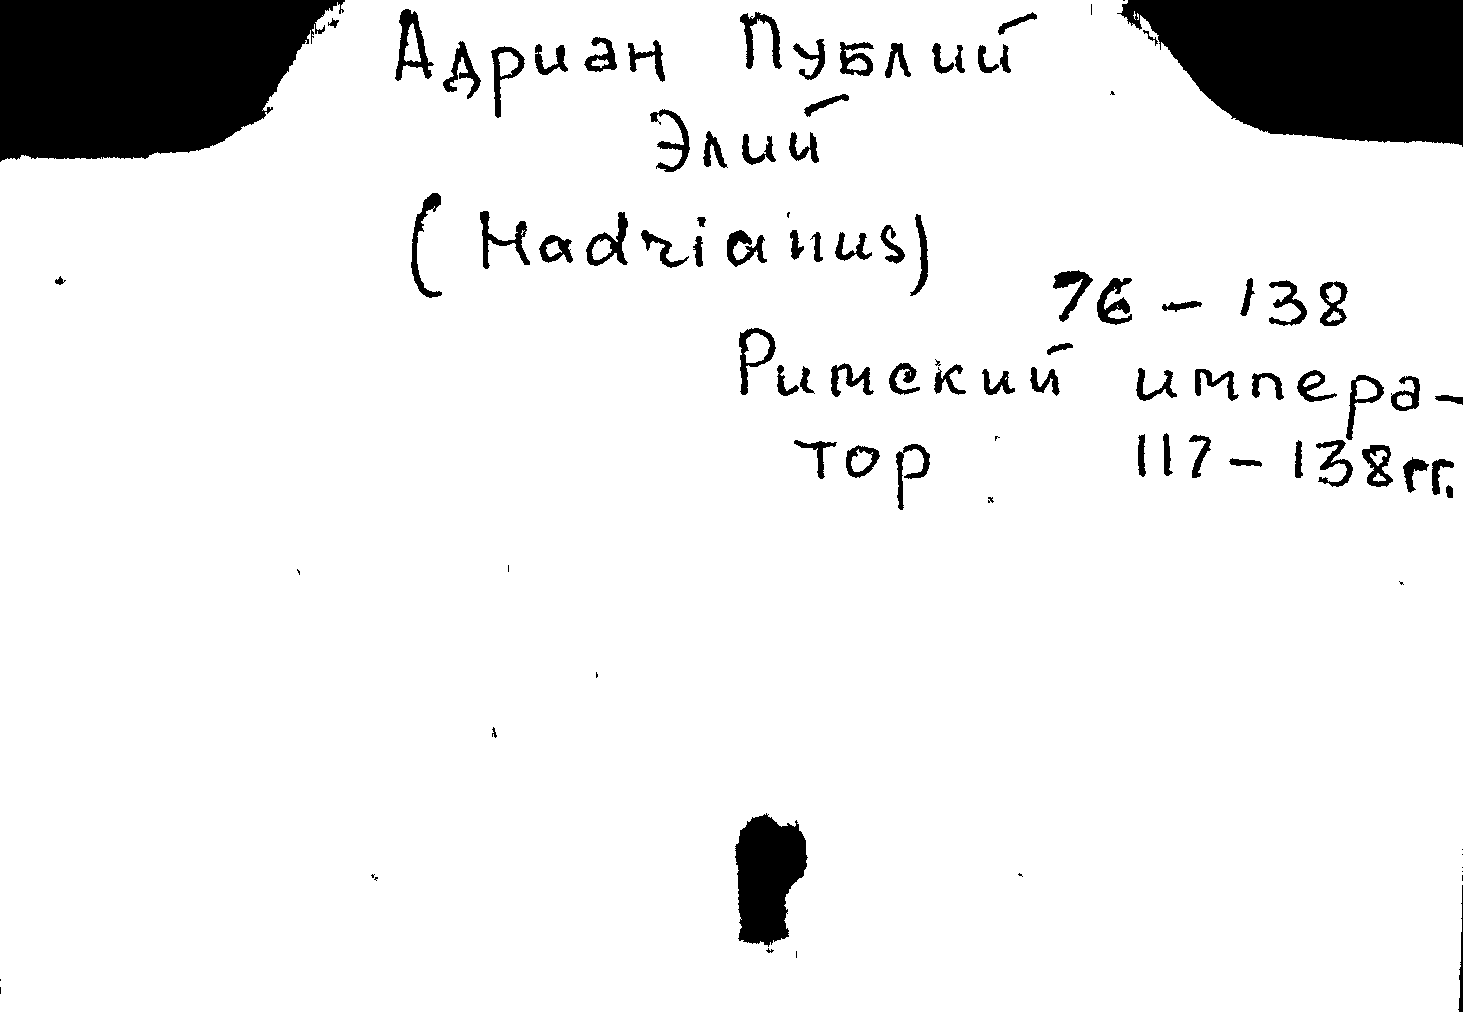 Адриан Публий
Элий
(Hadrianus)
76 – 138
Римский импера-
тор 117 – 138 гг.